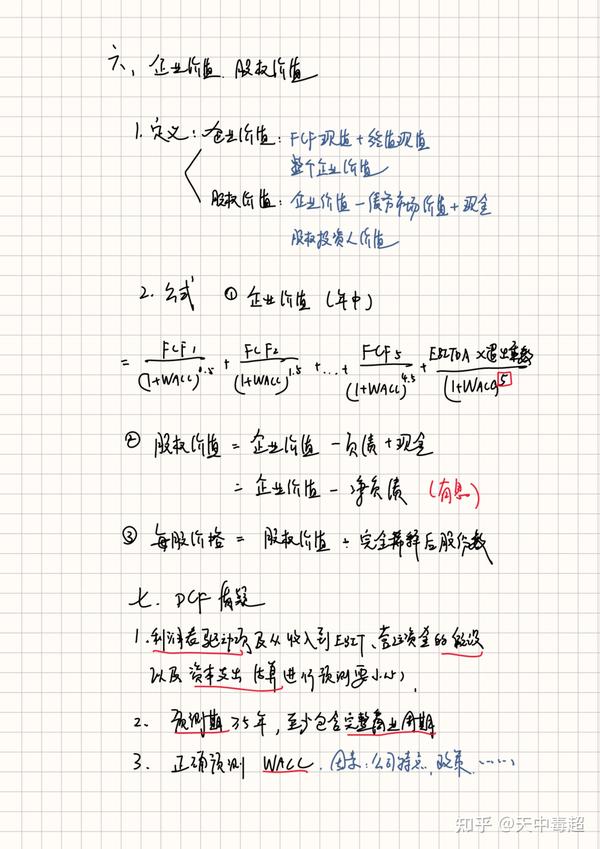 六、企业价值、股权价值
1. 定义：企业价值：FCF现值＋终值现值
整个企业价值
股权价值：企业价值－债务市场价值＋现金
股权投资人价值
2. 公式 ① 企业价值（年中）
= FCF1/(1+WACC)^0.5 + FCF2/(1+WACC)^1.5 + ... + FCF5/(1+WACC)^4.5 + EBITDA×退出乘数/(1+WACC)^5
② 股权价值 = 企业价值－负债＋现金
= 企业价值－净负债（有息）
③ 每股价格 = 股权价值 ÷ 完全稀释后股份数
七、DCF
1. 利润 驱动 及从收入到EBIT、营运资金的假设
以及资本支出 估算进行预测要小心；
2. 预测期 5年，至少包含完整商业周期
3. 正确预测 WACC. 因素：公司特点、政策……
知乎 @天中毒超